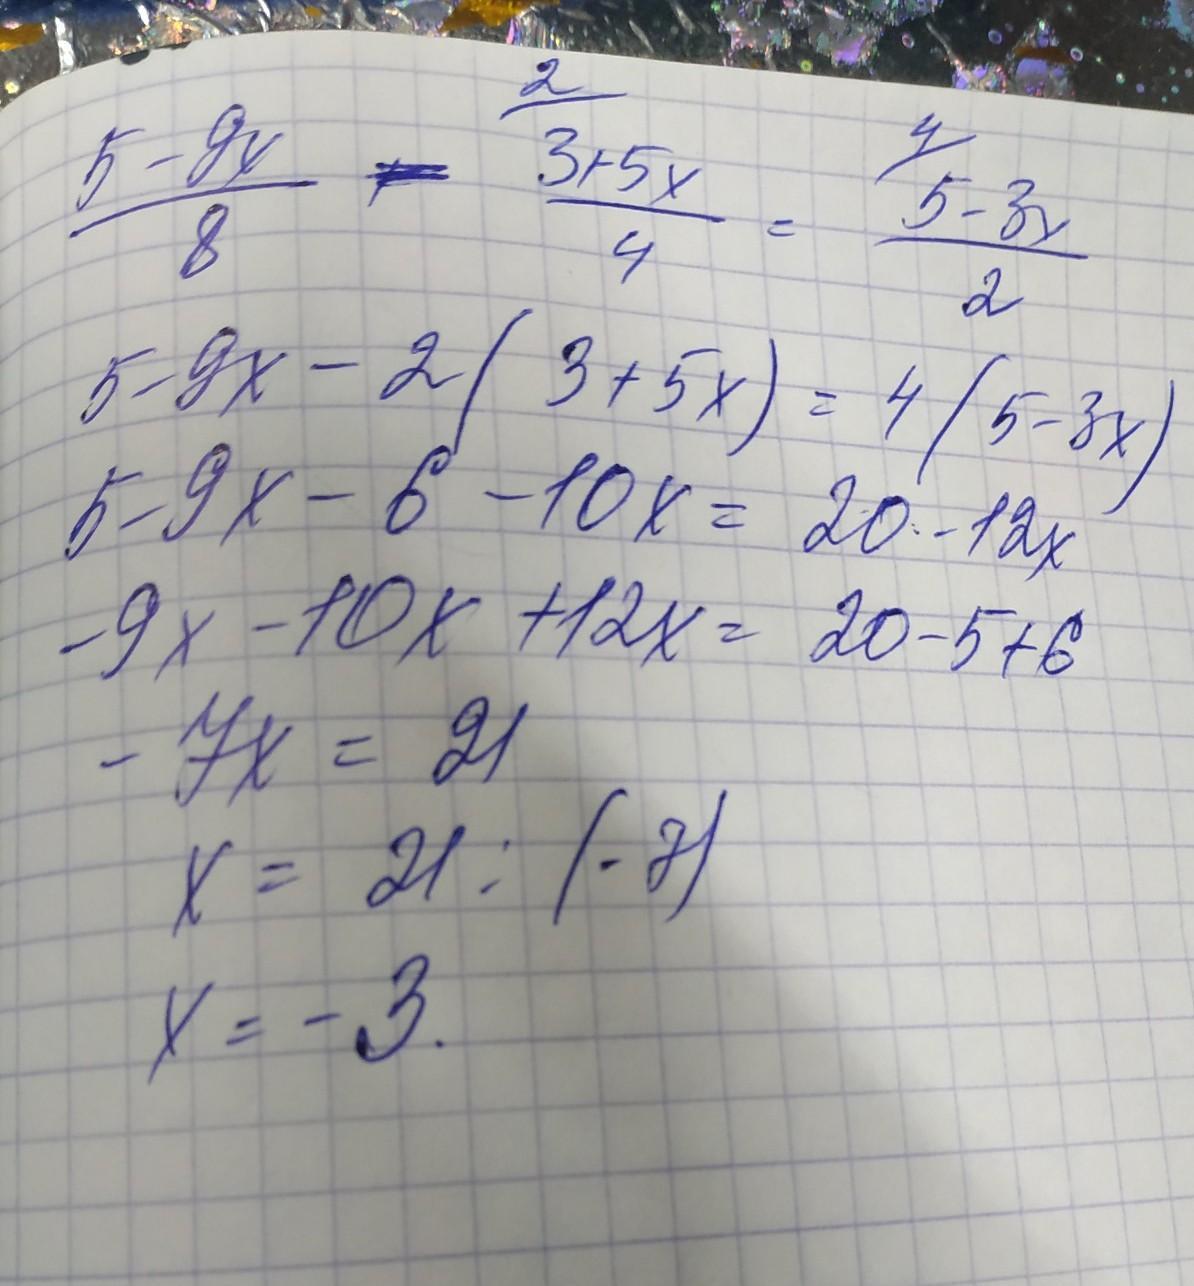 (5-9x)/8 - 2/ (3+5x)/4 = 4/ (5-3x)/2
5-9x - 2(3+5x) = 4(5-3x)
5-9x - 6 - 10x = 20 - 12x
-9x - 10x + 12x = 20 - 5 + 6
- 7x = 21
x = 21 : (-7)
x = - 3.